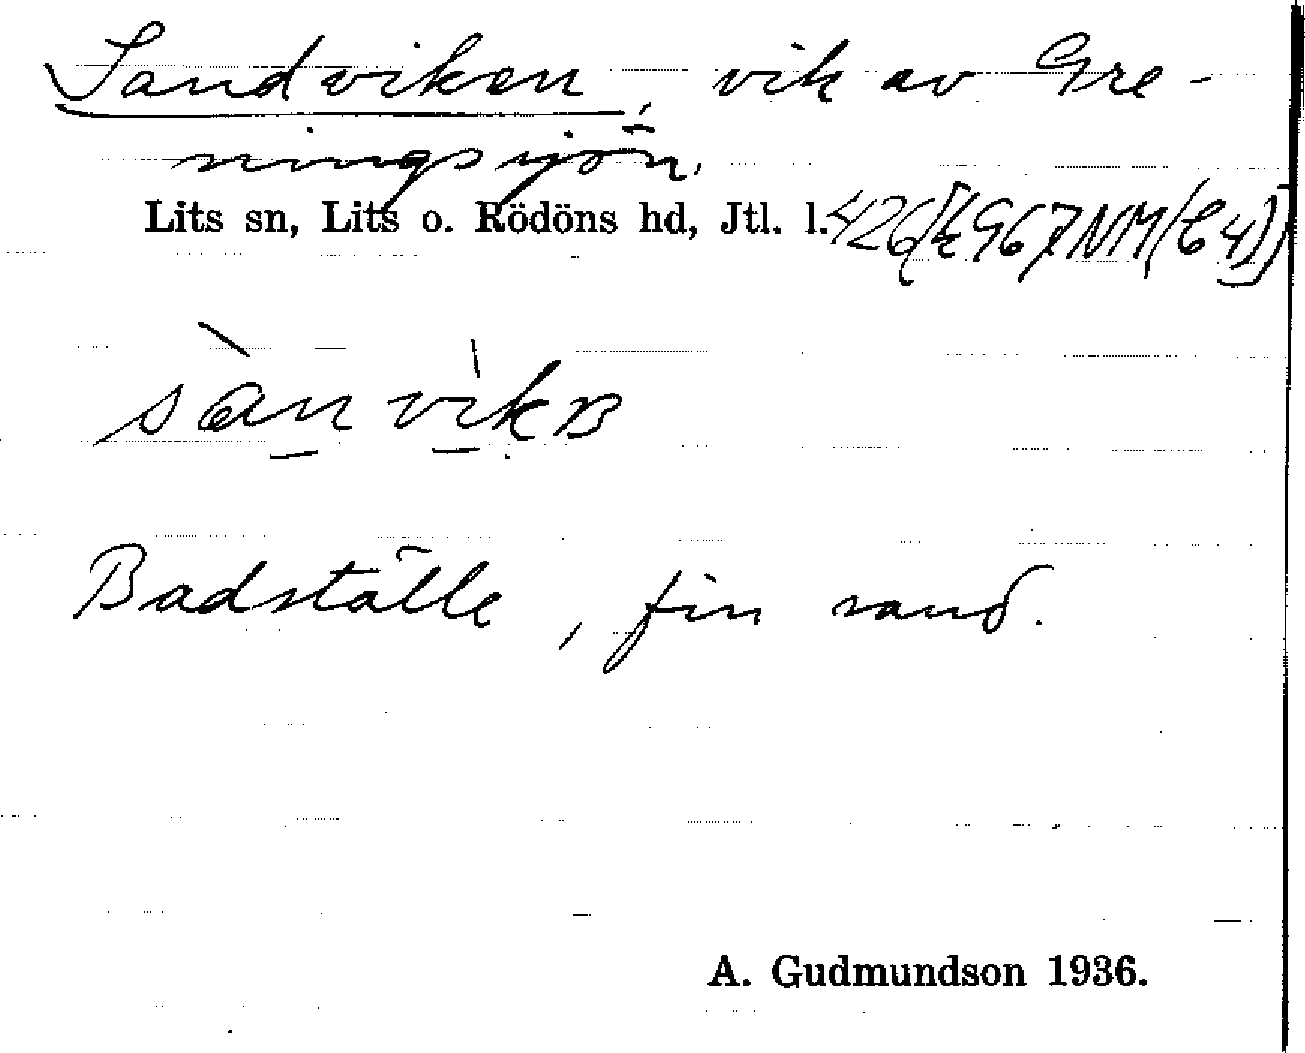 Sandviken, vik av Gre-
ningsjön.
Lits sn, Lits o. Rödöns hd, Jtl. l.
sànvìkʙ
Badställe, fin sand.
A. Gudmundson 1936.